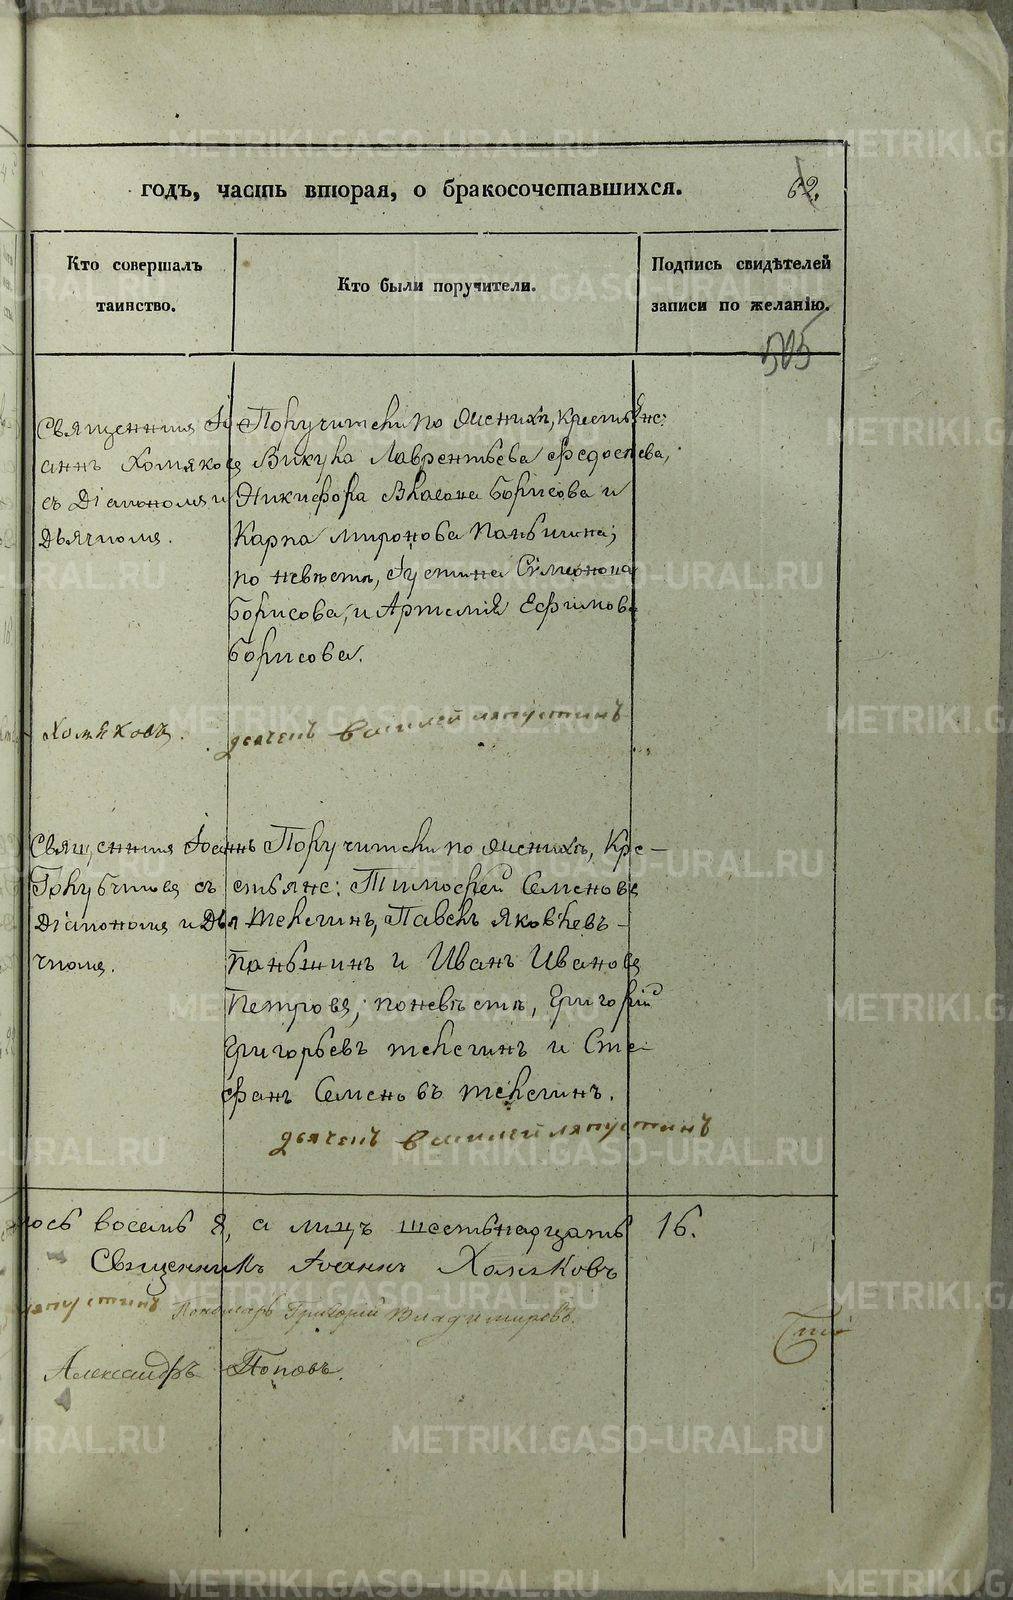 годъ, часть вторая, о бракосочетавшихся.
62.
Кто совершалъ
таинство.
Кто были поручители.
Подпись свидѣтелей
записи по желанію.
Священникъ Іо
аннъ Хомяковъ
съ Діакономъ и
Дьячкомъ.
Поручители по женихѣ, Крестьяне:
Викула Лаврентьевъ Федосѣевъ,
Никифоръ Власовъ Борисовъ и
Карпъ Мироновъ Паньшинъ;
по невѣстѣ, Іустинъ Симеоновъ
Борисовъ, и Артемій Ефимовъ
Борисовъ.
Хомяковъ.
дьячекъ василей ляпустинъ
Священникъ Іоаннъ
Голубчиковъ съ
Діакономъ и Дья
чкомъ.
Поручители по женихѣ, Кре-
стьяне: Тимофей Семеновъ
Телегинъ, Павелъ Яковлевъ
Паньшинъ и Иванъ Ивановъ
Петровъ; по невѣстѣ, Григорій
Григорьевъ Телегинъ и Сте-
фанъ Семеновъ Телегинъ.
дьячекъ василей ляпустинъ
лось восемь 8, а лицъ шестьнадцать 16.
Священникъ Іоаннъ Хомяковъ
ляпустинъ Пономарь Григорій Владимировъ.
Александръ Поповъ.
METRIKI.GASO-URAL.RU